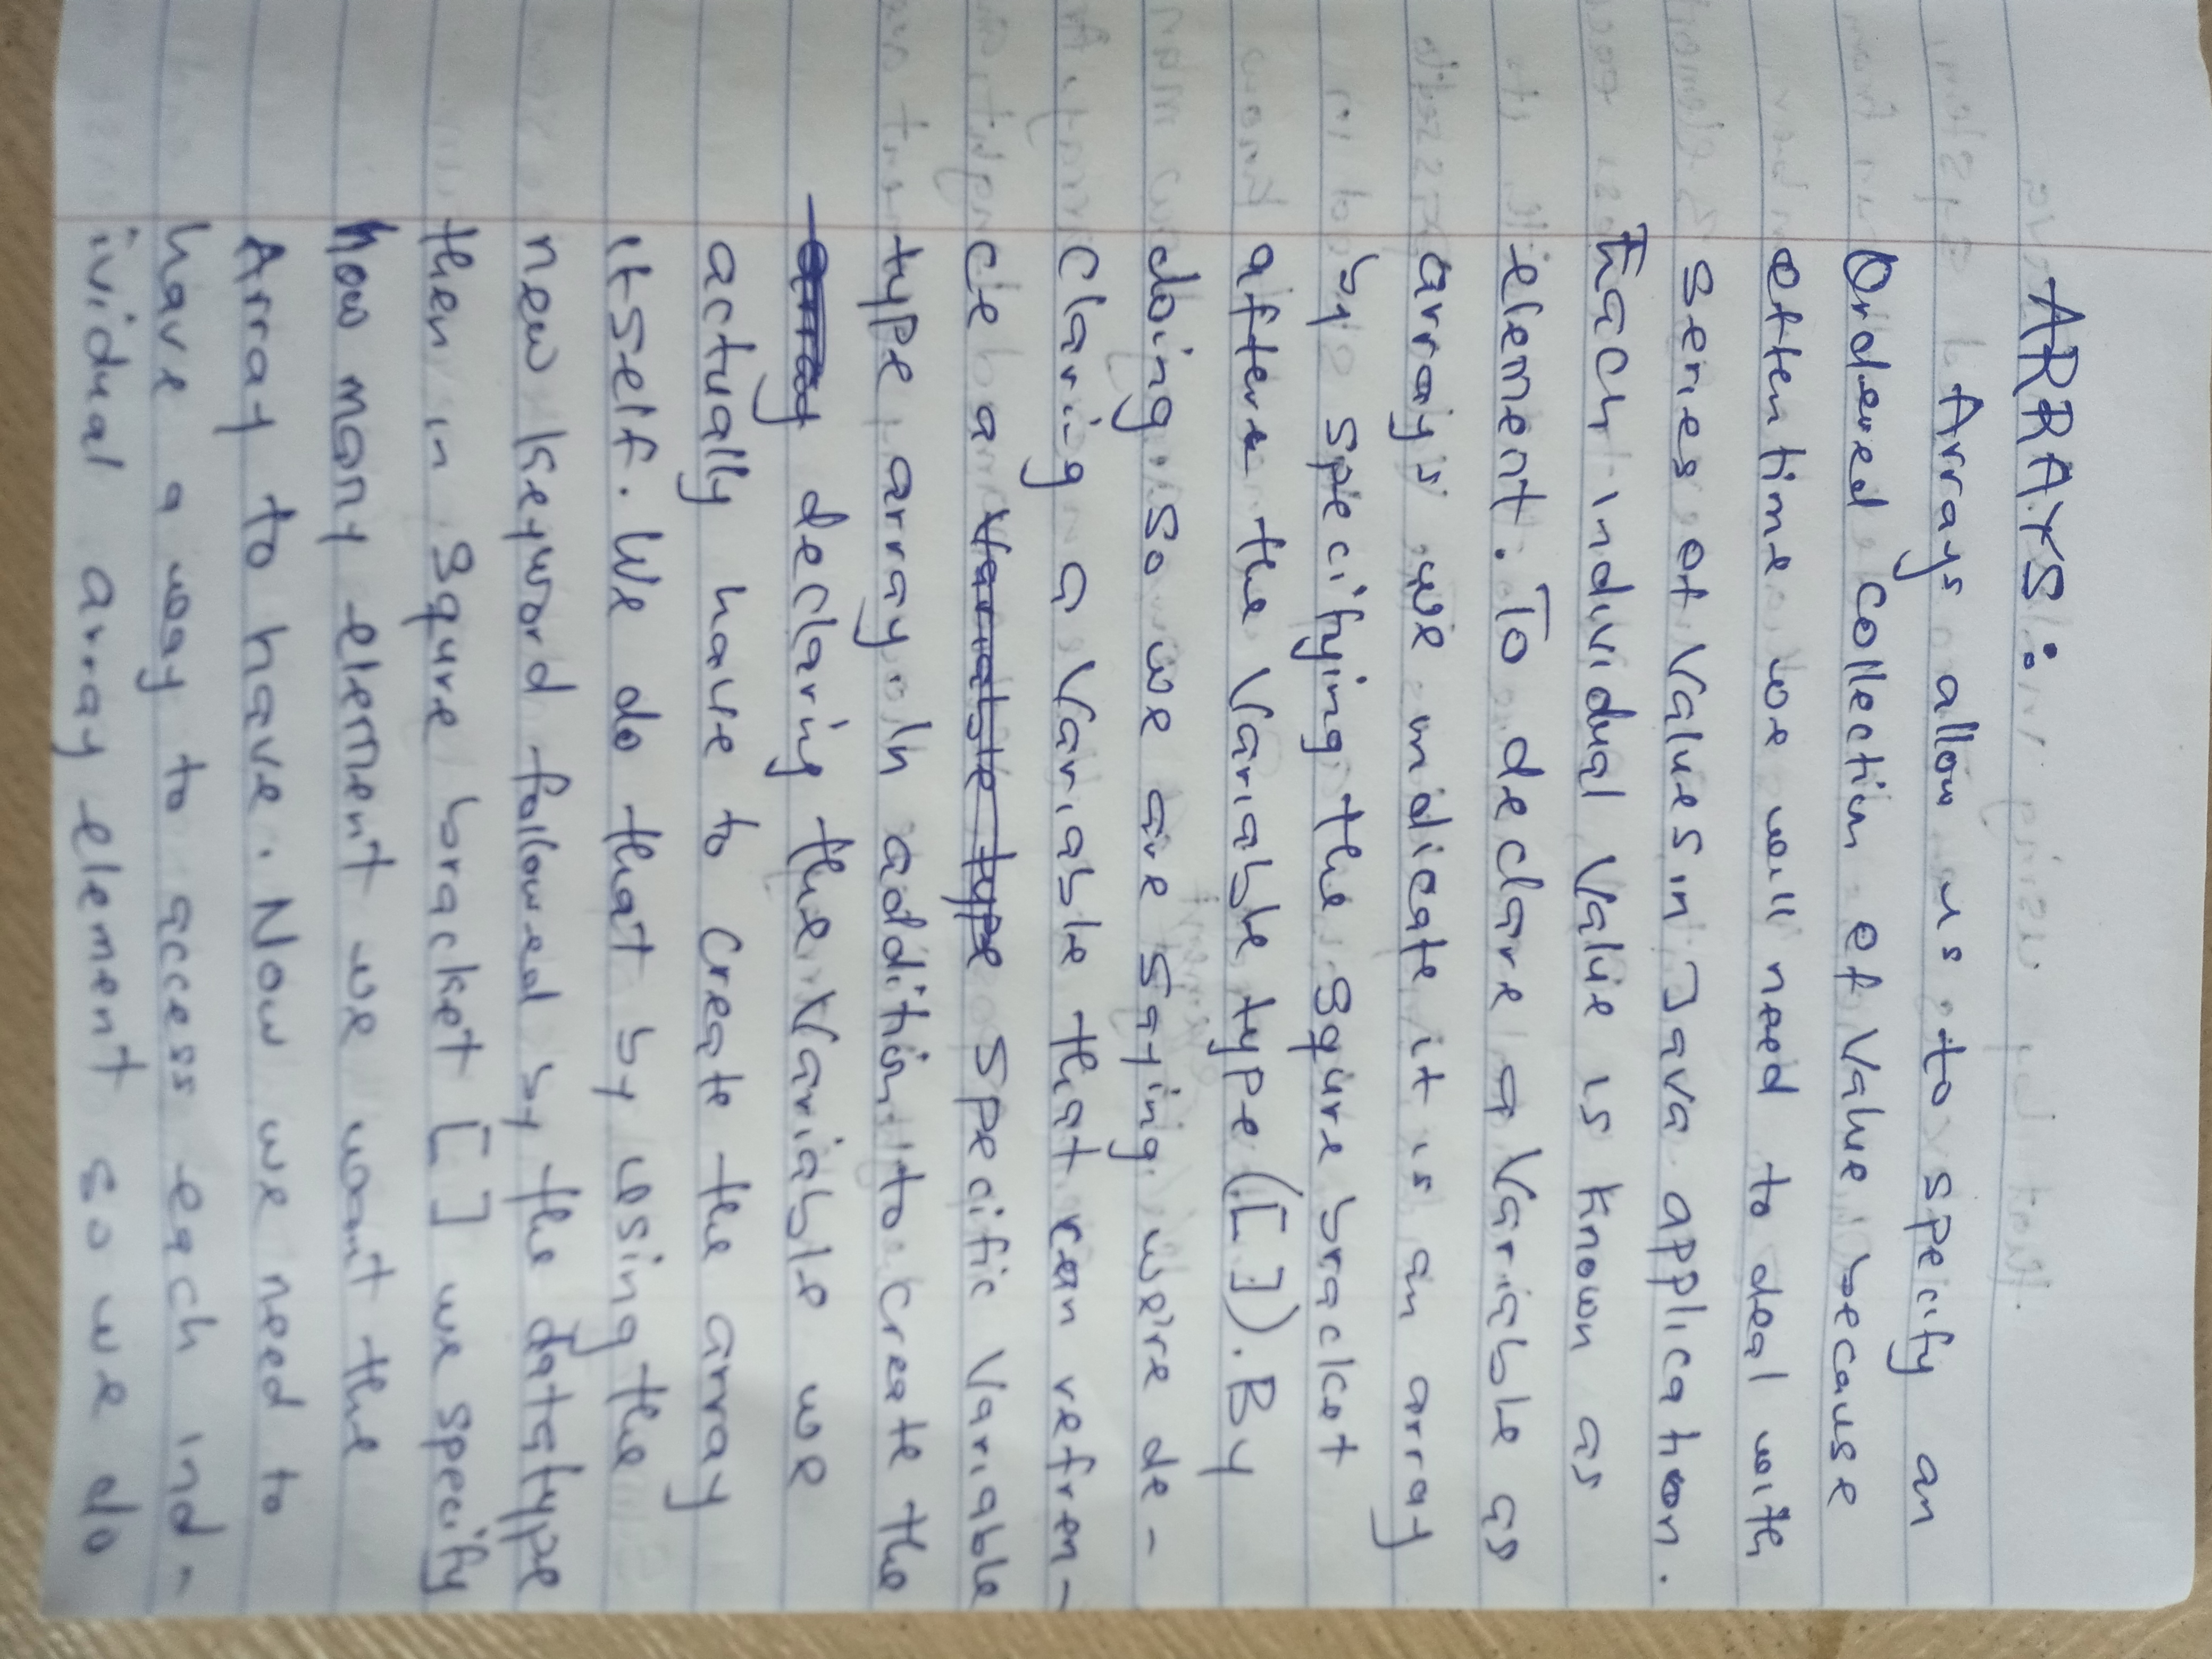 ARRAYS:
Arrays allow us to specify an
Ordered collection of value because
oftentime we will need to deal with
series of values in Java application.
Each individual value is known as
element. To declare a variable as
arrays we indicate it is an array
by specifying the square bracket
after the variable type ([]). By
doing so we are saying we're de-
claring a variable that can refren-
ce a variable type specific variable
type array. In addition to create the
array declaring the variable we
actually have to create the array
itself. We do that by using the
new keyword followed by the datatype
then in square bracket [ ] we specify
how many element we want the
Array to have. Now we need to
have a way to access each ind-
ividual array element so we do